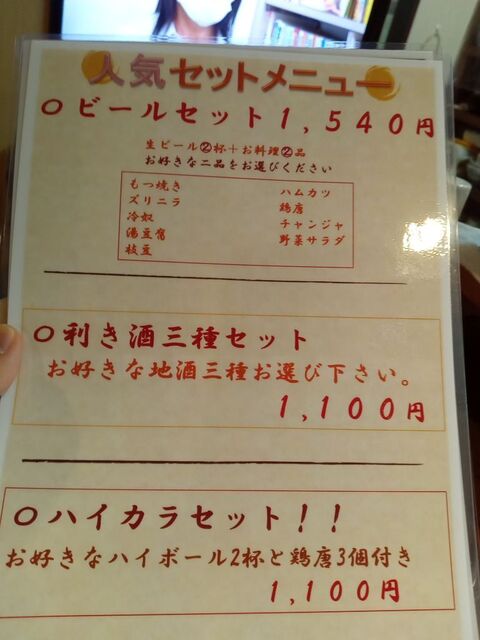 人気セットメニュー
〇ビールセット1,540円
生ビール②杯＋お料理②品
お好きな二品をお選びください
もつ焼き
ズリニラ
冷奴
湯豆腐
枝豆
ハムカツ
鶏唐
チャンジャ
野菜サラダ
〇利き酒三種セット
お好きな地酒三種お選び下さい。
1,100円
〇ハイカラセット!!
お好きなハイボール2杯と鶏唐3個付き
1,100円